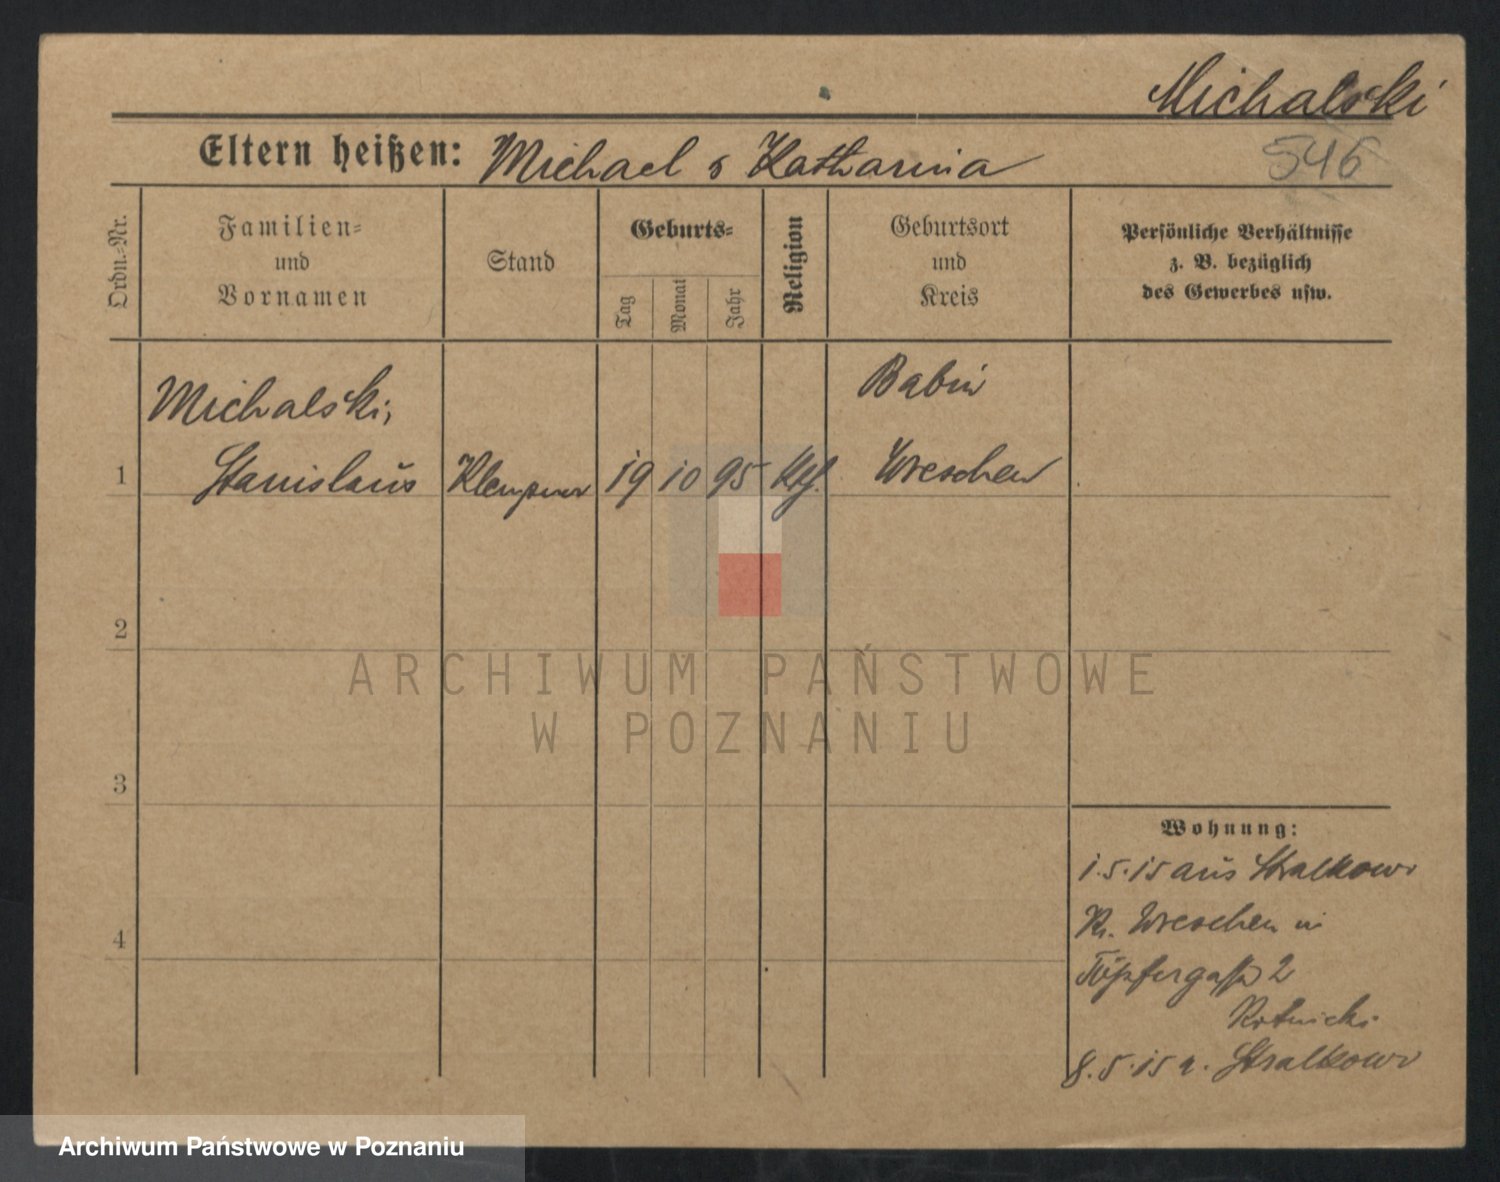 Michalski
546
Eltern heißen: Michael & Katharina
Ordn.-Nr.
Familien-
und
Vornamen
Stand
Geburts-
Tag
Monat
Jahr
Religion
Geburtsort
und
Kreis
Persönliche Verhältnisse
z. B. bezüglich
des Gewerbes usw.
Michalski,
Babin
1 Stanislaus Klempner 19 10 95 Kth. Wreschen
2
ARCHIWUM PAŃSTWOWE
W POZNANIU
3
Wohnung:
1.5.15 aus Stralkowo
Kr. Wreschen in
4
Töpfergasse 2
8.5.15 n. Stralkowo
Archiwum Państwowe w Poznaniu